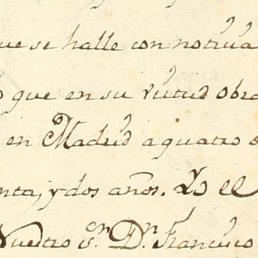 ue se halle con notiua
o que en su virtud obra
en Madrid a quatro
enta, y dos años. Yo el
Nuestro S.or D.n Francisco